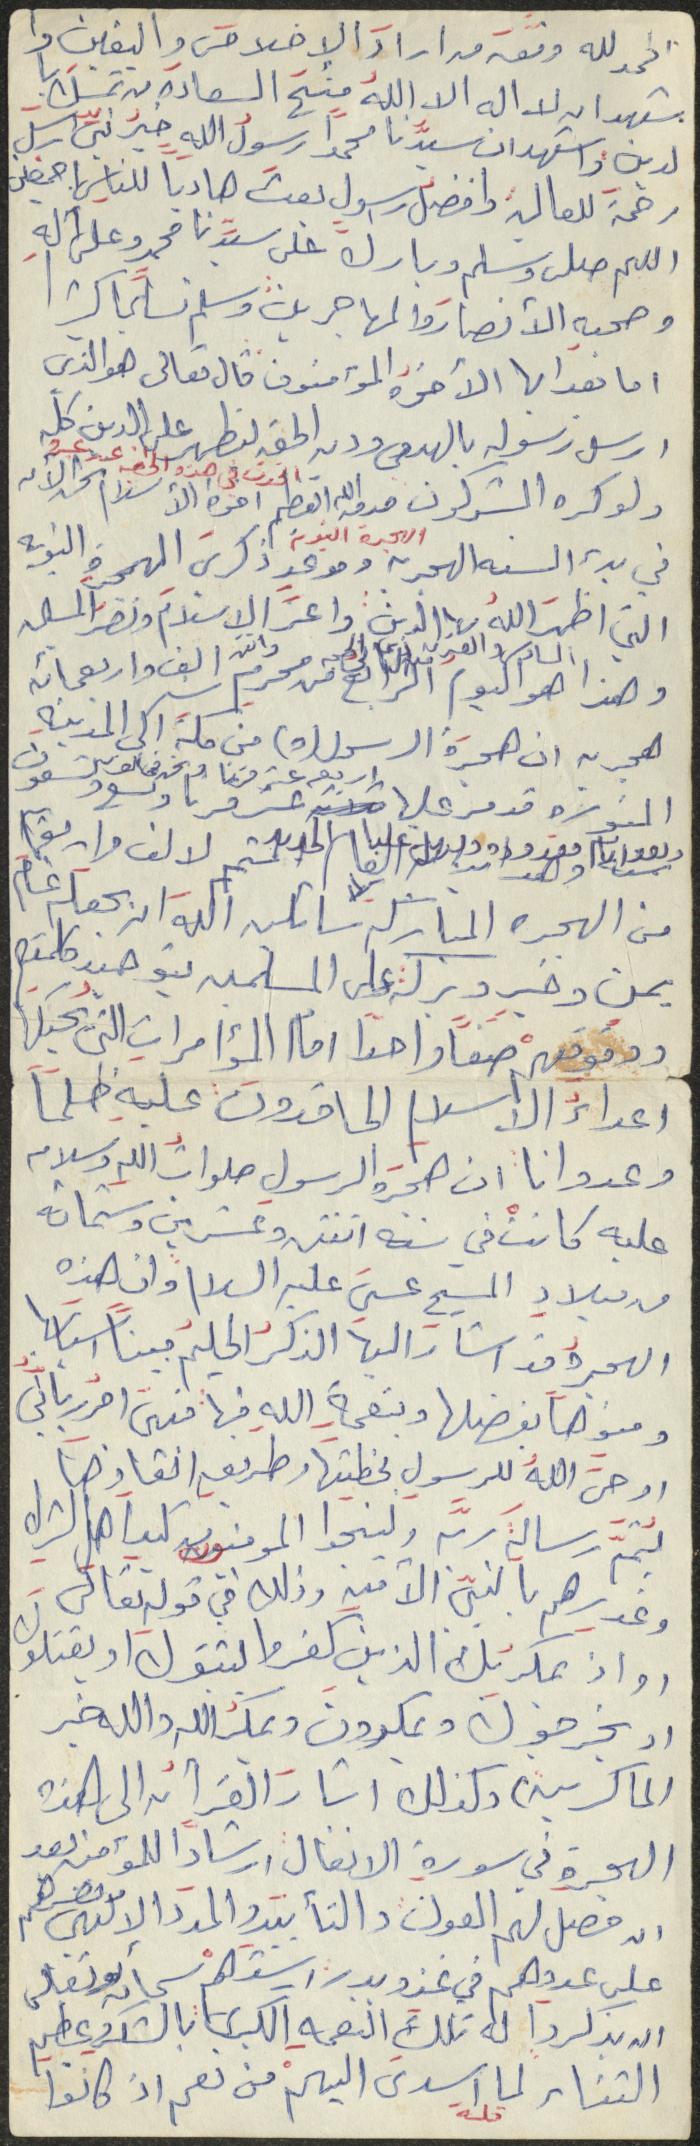 الحمد لله وفقه من اراد الاخلاص واليقين وا
يشهد ان لا اله الا اللهُ منح السعادة من تمسك با
لدين واشهد ان سيدَّنا محمداً رسولُ الله خير نبيّ ارسل
رحمة للعالمين وافضل رسول بعث هادياً للناس اجمعين
اللهم صلى وسلم وبارك على سيّدنا محمد وعلى آله
وصحبه الأنصار والمهاجرين وسلم تسليما كثيرا
اما بعد ايها الأخوة المؤمنون قال تعالى هو الذي
ارسل رسوله بالهدى ودين الحق ليظهره على الدين كله
ولو كره المشركون صدق الله العظيم اخوة الأسلام نحن الأن
في بدء السنه الهجرية وموعد ذكرى الهجرة النبوية
التي اظهرَ اللهُ بها الدين واعزَّ الاسلامَ ونصَر المسلمين
وهذا هو اليوم الرابع من محرم سنة الف واربعمائة
هجرية ان هجرةَ الرسول (ص) من مكة الى المدينة
المنوره قد مر عليها اربعة عشر قرنا
العام الجديد المتمم لالف واربعمائة
من الهجره المباركه سائلين اللهَ ان يجعله عامَ
يمن وخير وبركة على المسلمين بتوحيد كلمتهم
ووقوفهمْ صفاً واحدا امام المؤامرات التي تحيكها
اعداءُ الأسلام الحاقدون عليهِ ظلماً
وعدوانا ان هجرة الرسول صلوات الله وسلامه
عليه كانتْ في سنه اثنتين وعشرين وستمائه
من ميلادِ المسيحِ عيسى عليه السلام وان هذه
الهجرةُ قد اشارَ اليها الذكرُ الحكيمُ مبيناً اسبابها
ومنوهاً بفضلها وبنعمة اللهِ فيها فهى امر ربانيٌّ
اوحى اللهُ للرسول بخطتها وطريقة انفاذها
لتتمَّ رسالةُ ربّه ولينجوا المؤمنون من كيد اهل الشرك
وغدرهم بالنبيّ الأمين وذلك في قوله تعالى
(واذ يمكر بك الذين كفروا ليثبتوك او يقتلوك
او يخرجوك ويمكرون ويمكرُ الله والله خير
الماكرين) وكذلك اشارَ القرآن الى هذه
الهجرة في سورة الانفال ارشادا للمؤمنين بعد
ان حصل لهم العون والتأييد والمدد الالهى ونصرهم
على عدوهم في غزوة بدر ارشدهمْ سبحانه وتعالى
ان يذكروا له تلك النعمة الكبرى بالشكر وعظيم
الثناء لما اسدى اليهمْ من نعم اذ كانوا
قلة